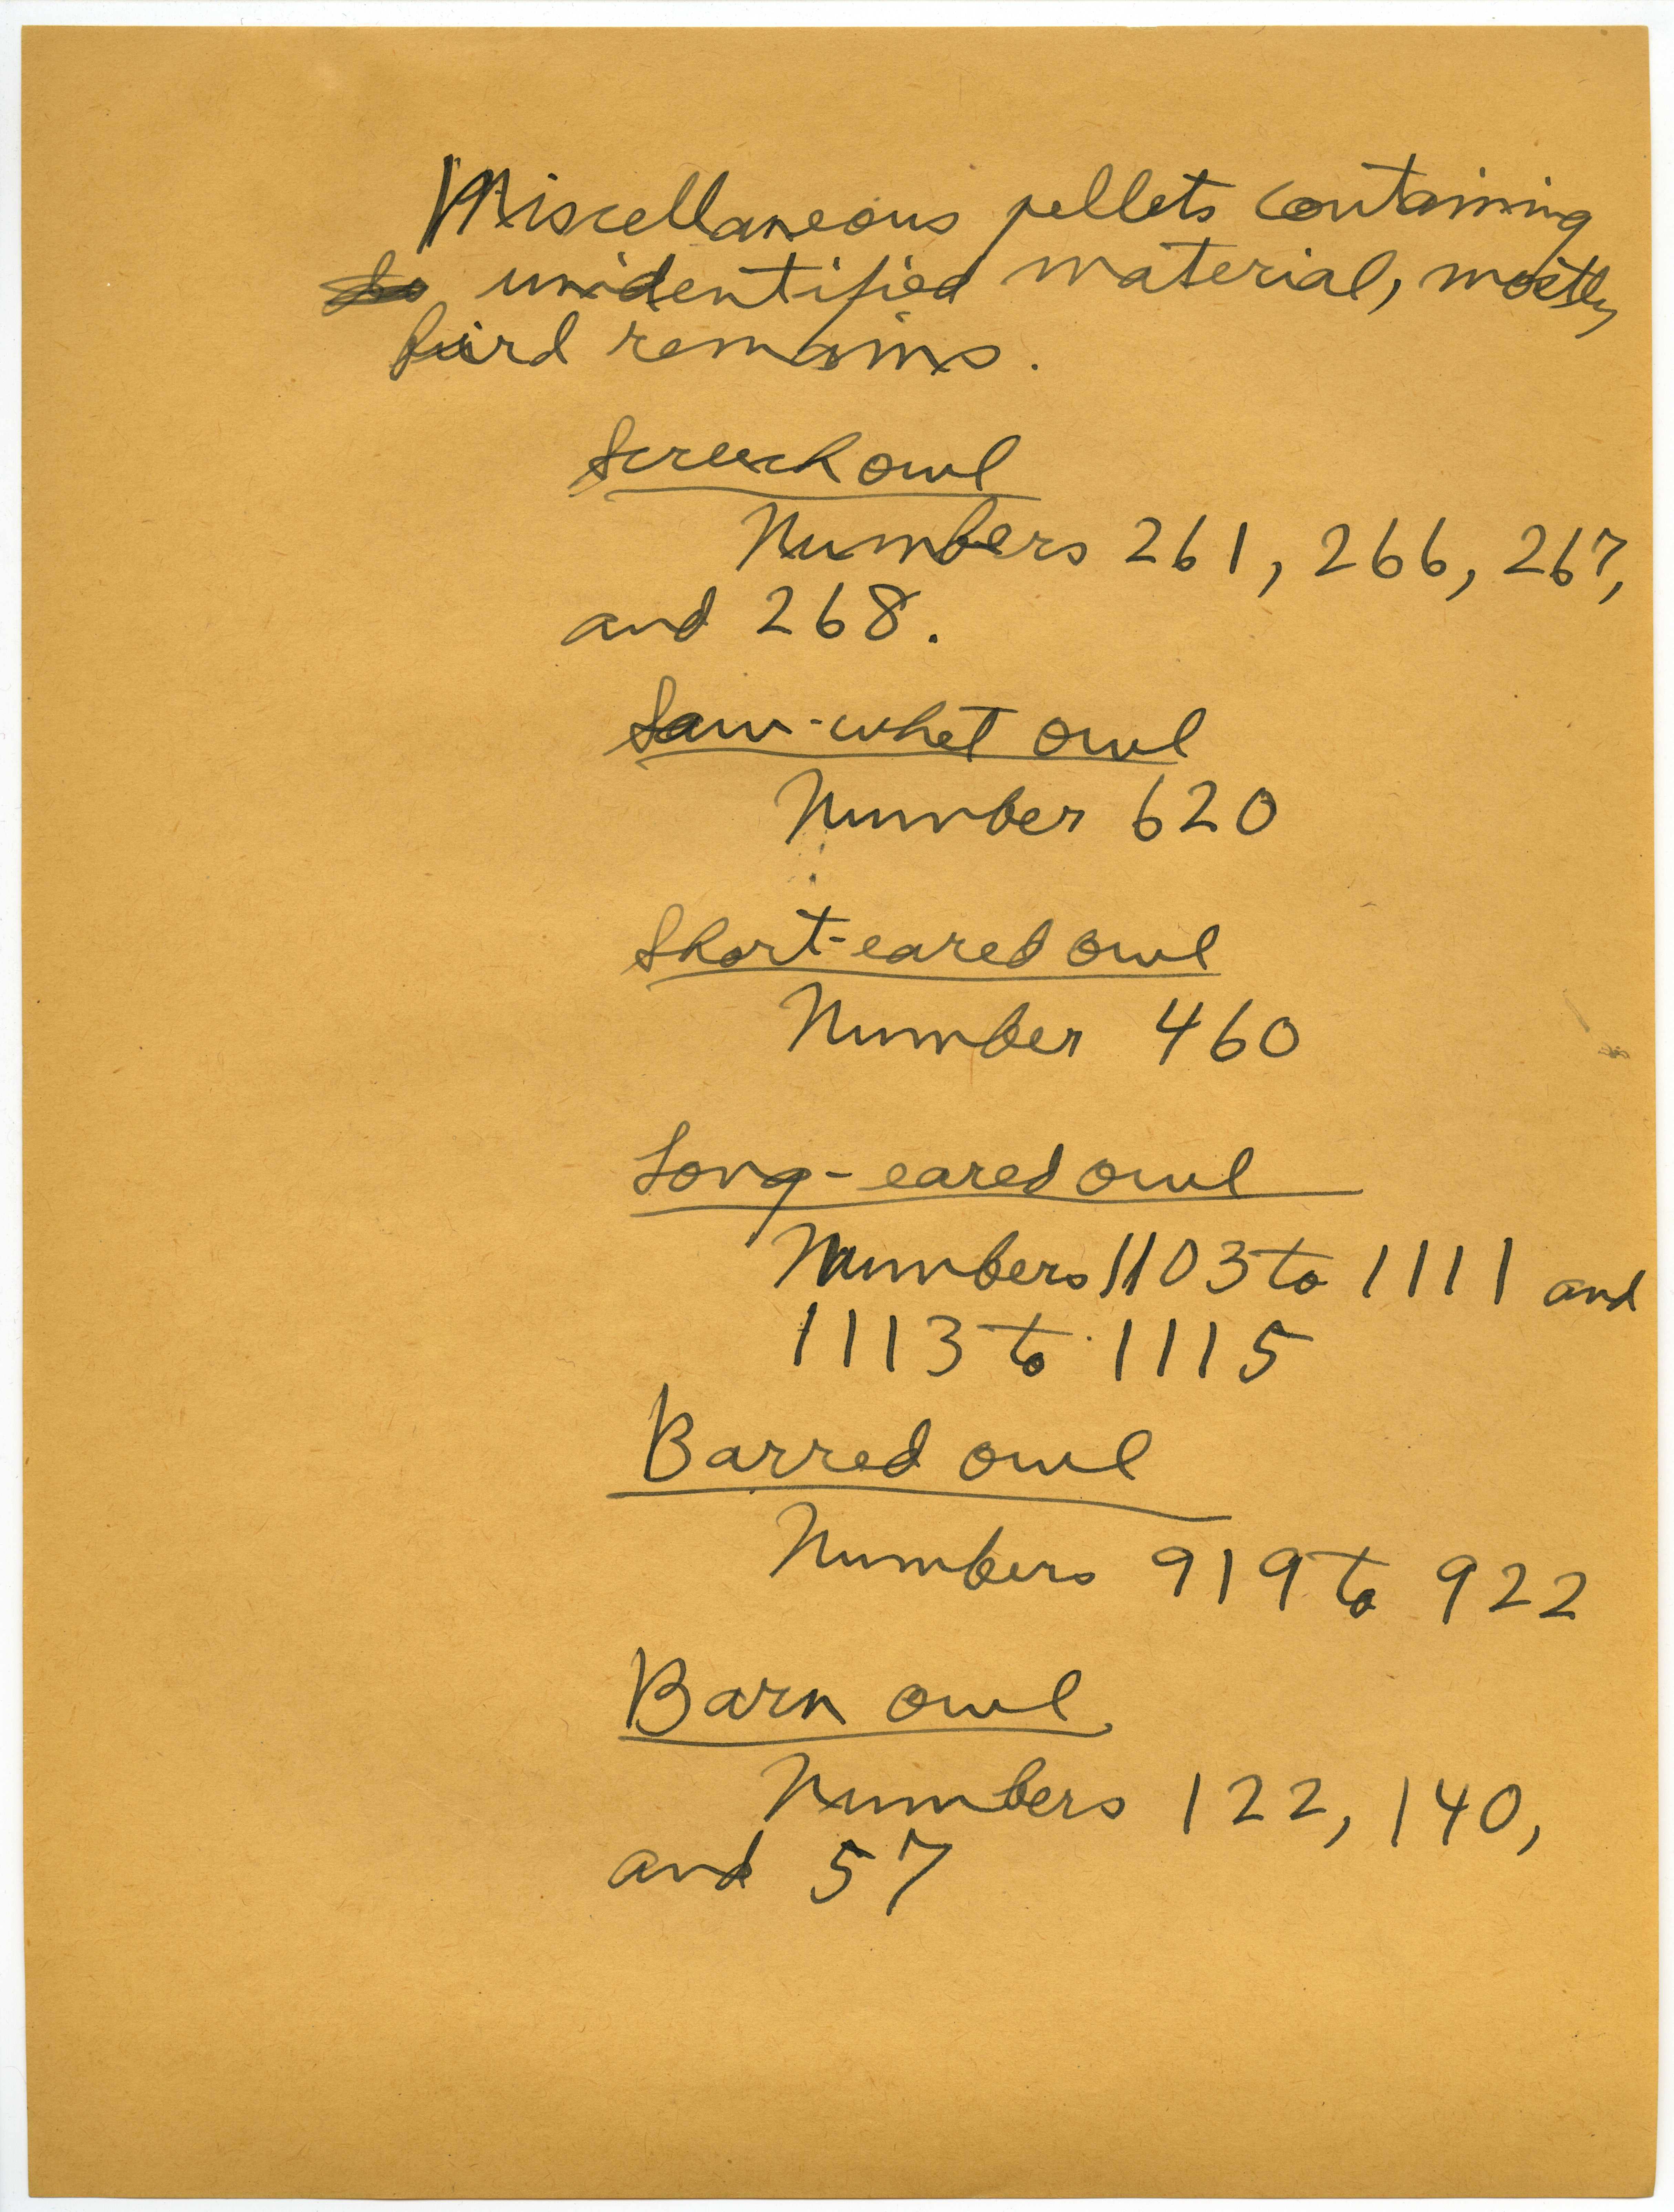 Miscellaneous pellets containing
unidentified material, mostly
bird remains.
Screech owl
Numbers 261, 266, 267,
and 268.
Saw-whet owl
Number 620
Short-eared owl
Number 460
Long-eared owl
Numbers 1103 to 1111 and
1113 to 1115
Barred owl
Numbers 919 to 922
Barn owl
Numbers 122, 140,
and 57